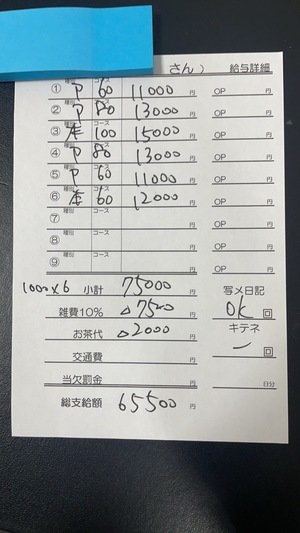 さん) 給与詳細
種別 コース
① P 60 11000 円 OP 円
② P 80 13000 円 OP 円
③ 本 100 15000 円 OP 円
④ P 80 13000 円 OP 円
⑤ P 60 11000 円 OP 円
⑥ 本 60 12000 円 OP 円
⑦ 種別 コース 円 OP 円
⑧ 種別 コース 円 OP 円
⑨ 種別 コース 円 OP 円
1000×6 小計 75000 円 写メ日記
雑費10% △7500 円 OK 回
お茶代 △2000 円 キテネ
交通費 円 ー 回
当欠罰金 円 日分
総支給額 65500 円